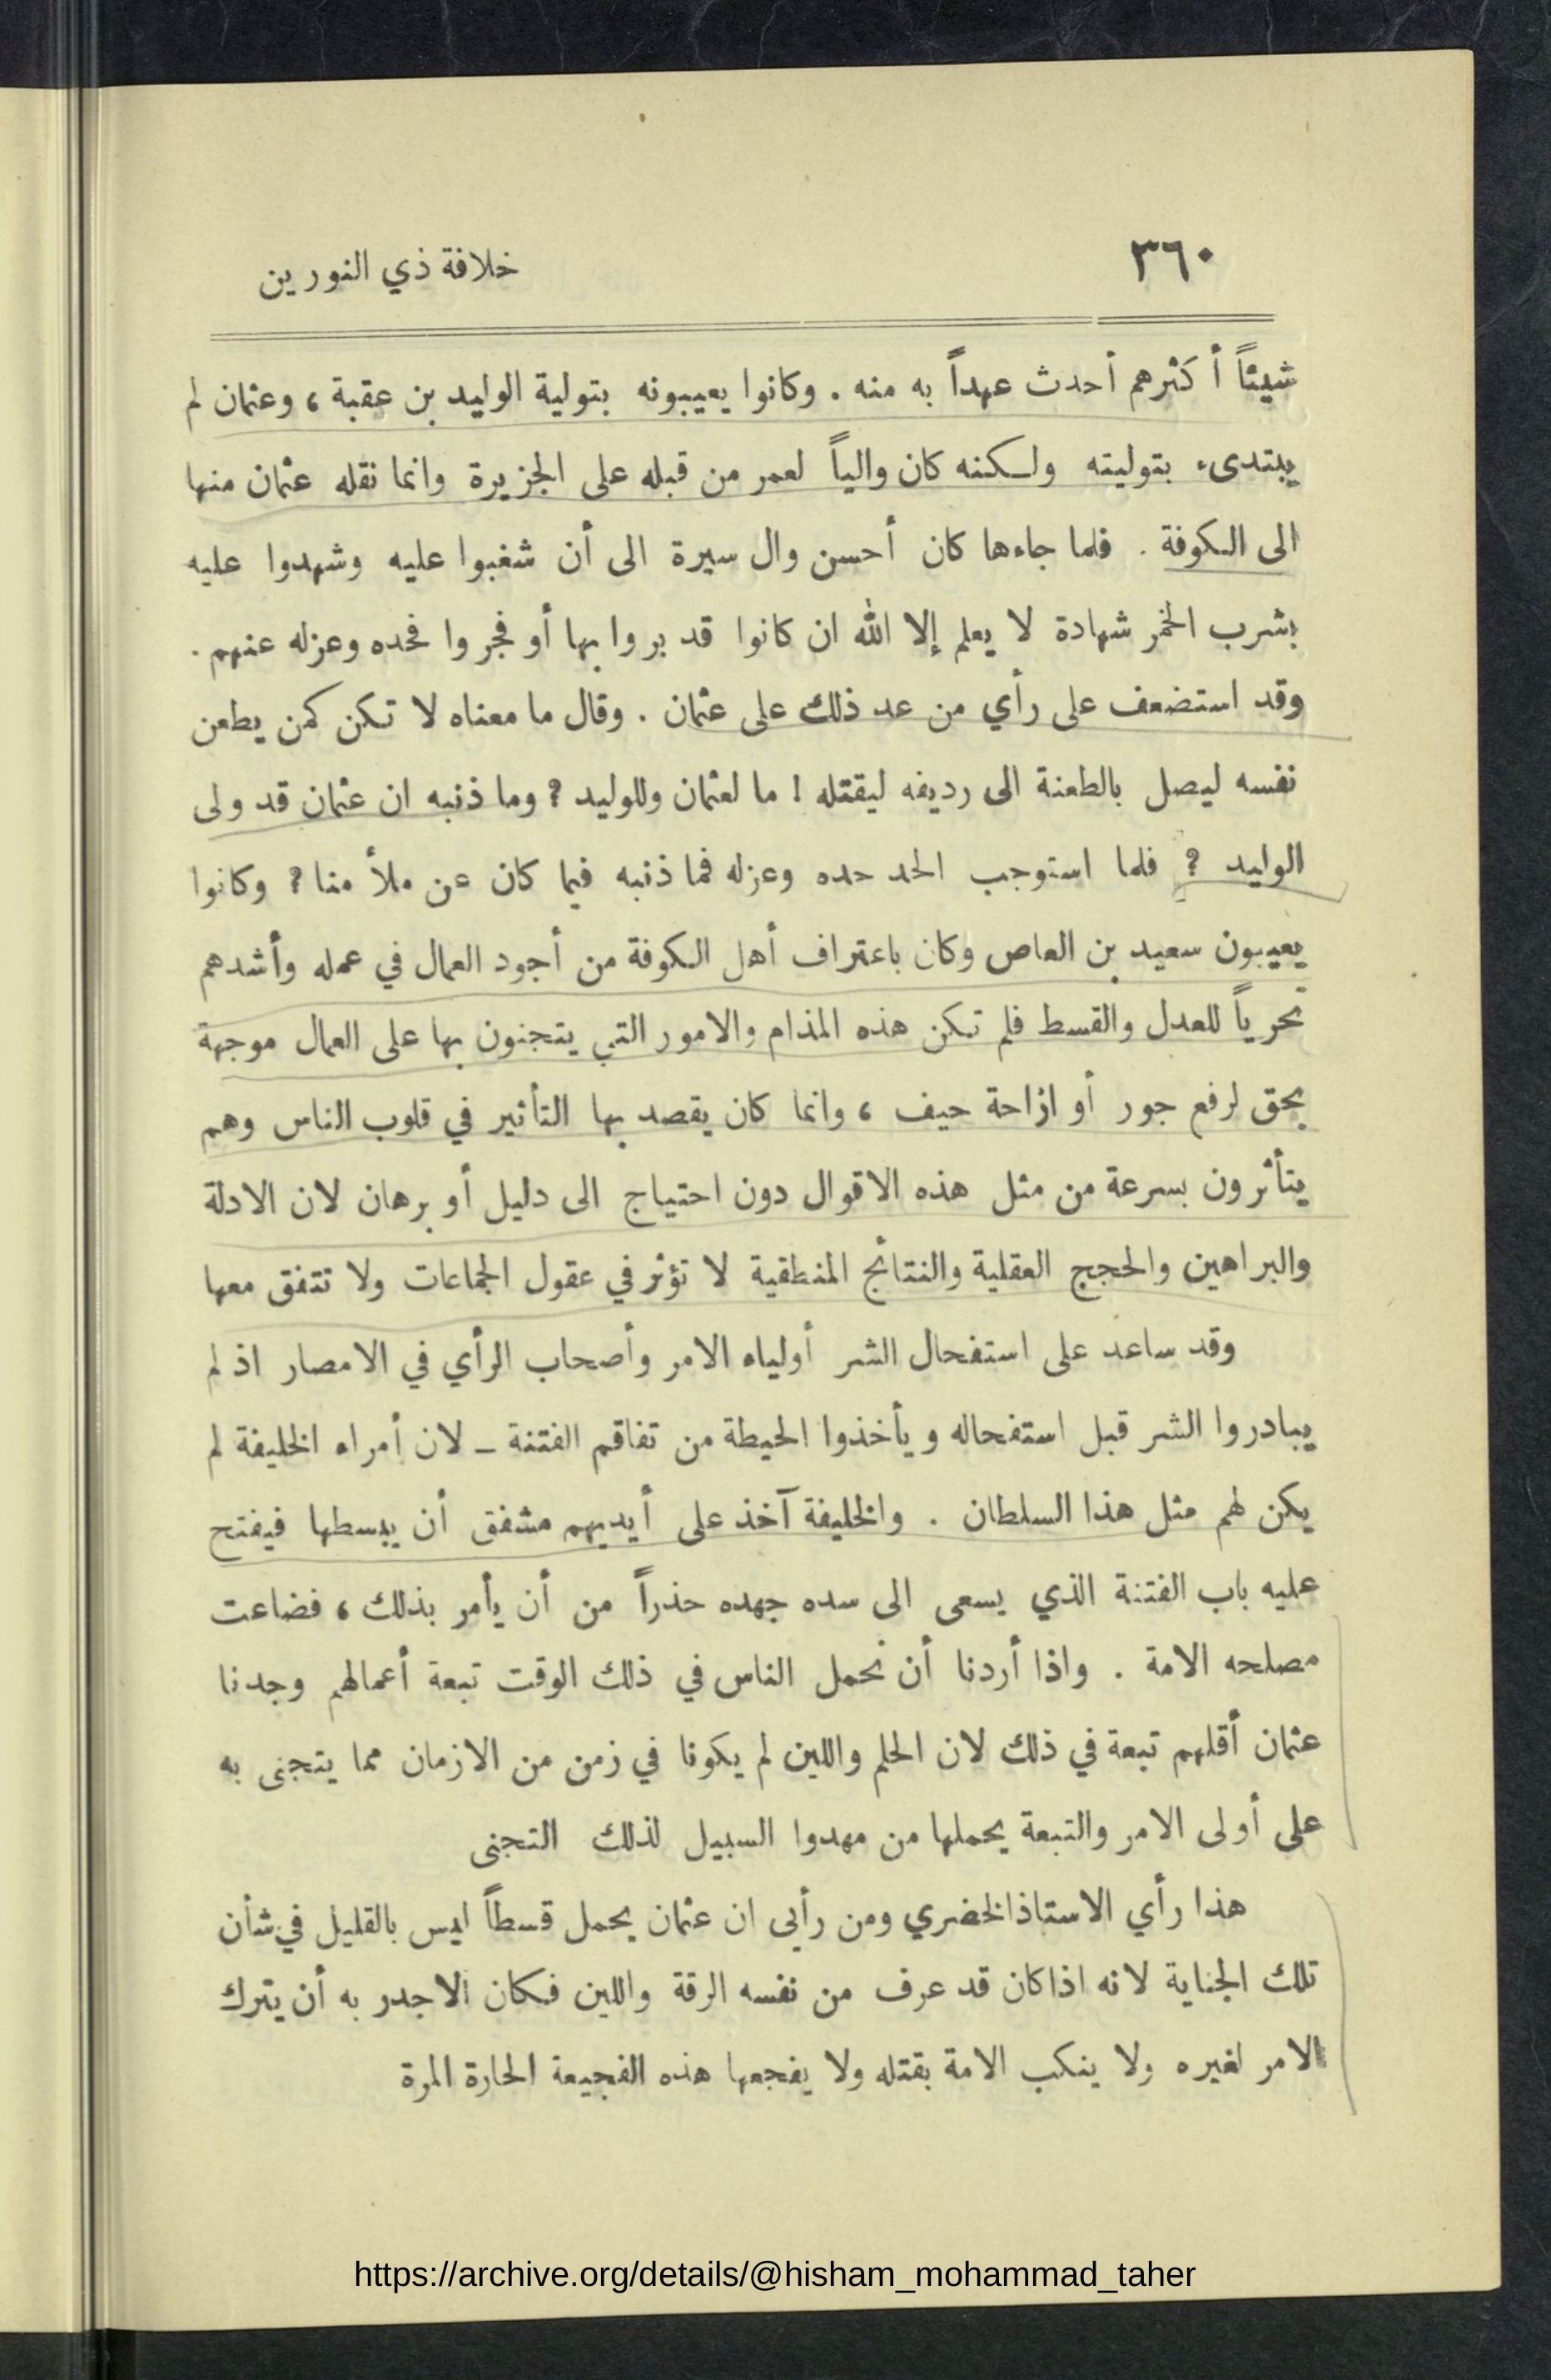 ٣٦٠
خلافة ذي النورين
شيئاً أكثرهم أحدث عهداً به منه . وكانوا يعيبونه بتولية الوليد بن عقبة ، وعثمان لم
يبتدىء بتوليته ولكنه كان والياً لعمر من قبله على الجزيرة وانما نقله عثمان منها
الى الكوفة . فلما جاءها كان أحسن وال سيرة الى أن شغبوا عليه وشهدوا عليه
بشرب الخمر شهادة لا يعلم إلا الله ان كانوا قد بروا بها أو فجروا فحده وعزله عنهم .
وقد استضعف على رأي من عد ذلك على عثمان . وقال ما معناه لا تكن كمن يطعن
نفسه ليصل بالطعنة الى رديفه ليقتله ! ما لعثمان وللوليد ? وما ذنبه ان عثمان قد ولى
الوليد ? فلما استوجب الحد حده وعزله فما ذنبه فيما كان عن ملأ منا ? وكانوا
يعيبون سعيد بن العاص وكان باعتراف أهل الكوفة من أجود العمال في عمله وأشدهم
تحرياً للعدل والقسط فلم تكن هذه المذام والامور التي يتجنون بها على العمال موجهة
بحق لرفع جور أو ازاحة حيف ، وانما كان يقصد بها التأثير في قلوب الناس وهم
يتأثرون بسرعة من مثل هذه الاقوال دون احتياج الى دليل أو برهان لان الادلة
والبراهين والحجج العقلية والنتائج المنطقية لا تؤثر في عقول الجماعات ولا تتفق معها
وقد ساعد على استفحال الشر أولياء الامر وأصحاب الرأي في الامصار اذ لم
يبادروا الشر قبل استفحاله ويأخذوا الحيطة من تفاقم الفتنة ــ لان أمراء الخليفة لم
يكن لهم مثل هذا السلطان . والخليفة آخذ على أيديهم مشفق أن يبسطها فيفتح
عليه باب الفتنة الذي يسعى الى سده جهده حذراً من أن يأمر بذلك ، فضاعت
مصلحه الامة . واذا أردنا أن نحمل الناس في ذلك الوقت تبعة أعمالهم وجدنا
عثمان أقلهم تبعة في ذلك لان الحلم واللين لم يكونا في زمن من الازمان مما يتجنى به
على أولى الامر والتبعة يحملها من مهدوا السبيل لذلك التجنى
هذا رأي الاستاذ الخضري ومن رأيى ان عثمان يحمل قسطاً ليس بالقليل في شأن
تلك الجناية لانه اذا كان قد عرف من نفسه الرقة واللين فكان الاجدر به أن يترك
الامر لغيره ولا ينكب الامة بقتله ولا يفجعها هذه الفجيعة الحارة المرة
https://archive.org/details/@hisham_mohammad_taher